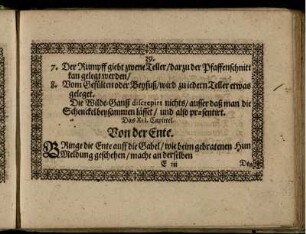 39.
7. Der Rumpff giebt zwene Teller / darzu der Pfaffenschnitt
kan gelegt werden /
8. Vom Gefülten oder Beyfuß / wird zu iedern Teller etwas
geleget.
Die Wilde-Ganß discrepirt nichts / ausser daß man die
Schenckel beysammen lässet / und also præsentirt.
Das XII. Capitel.
Von der Ente.
BRinge die Ente auff die Gabel / wie beim gebratenen Hun
Meldung geschehen / mache an derselben
E iii Den